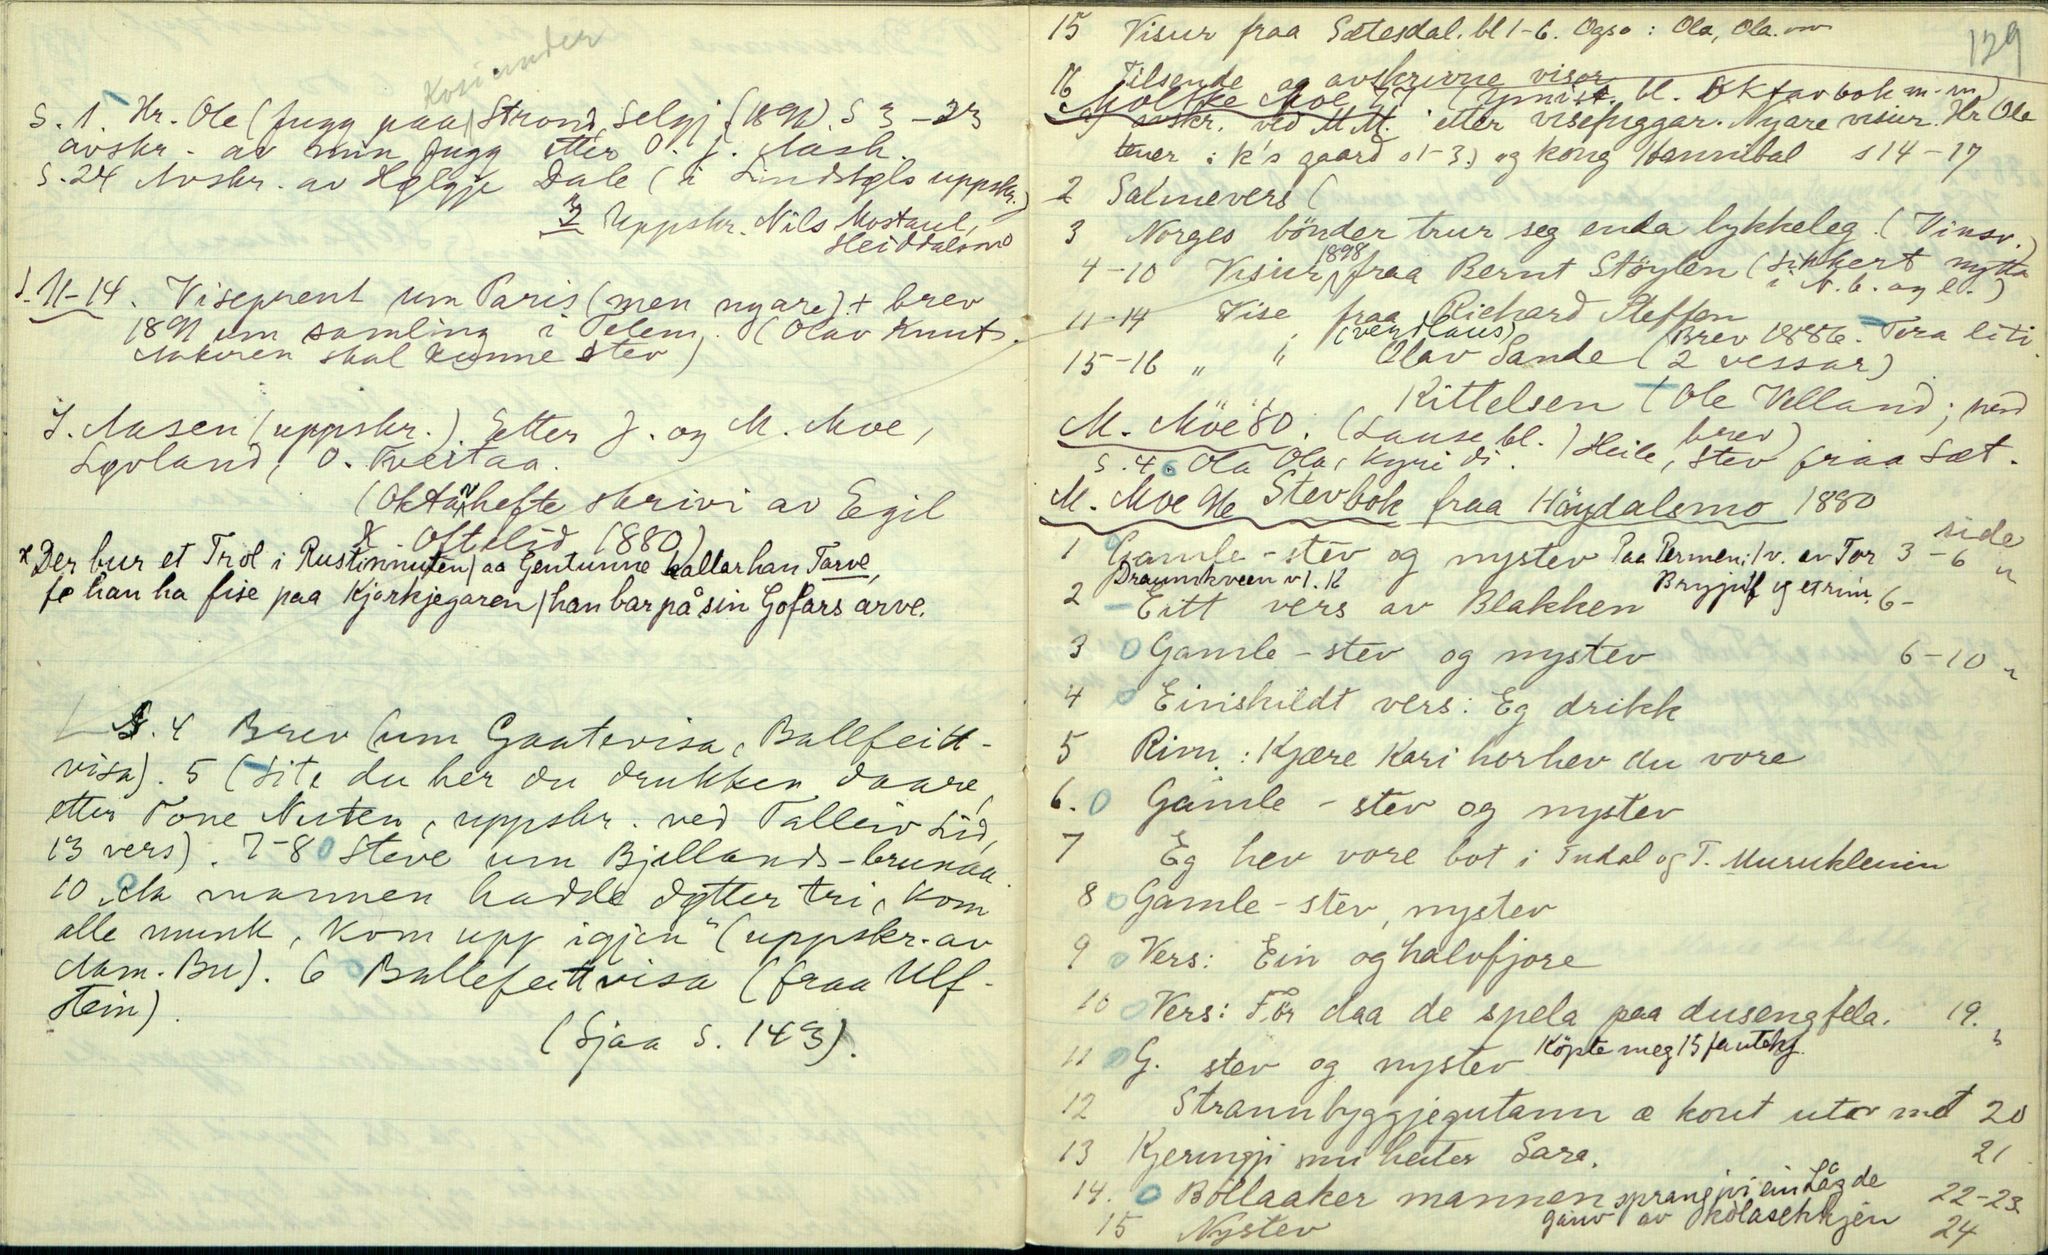 S. 1. Hr. Ole (fugg paa Strond Selgj. (1891). S 3-23
avskr. av min fugg etter O. J. Aash.
S. 24 Avskr. av Helgje Dale (i Lindstøls uppskr.)
32 Uppskr. Nils Mostaul,
Heiddalsmo
S. 11-14. Viseprent um Paris (men nyare) + brev
1891 um samling i Telem. (Olav Knuts.
skal kunne stev)
I. Aasen (uppskr.). Etter J. og M. Moe,
Løvland, O. Tveitaa.
(Oktavhefte skrivi av Egil
Oftelid 1880)
x Der bur et Trol i Rustinnuten / aa Gentunne kallar han Tarve,
fe han ha fise paa Kjørkjegaren / han bar på sin Gofars arve.
S. 4 Brev (um Gaatevisa, Ballfeitt-
visa). 5 (Site du her du drukken daare,
etter Tone Nisten, uppskr. ved Talleiv Lid,
13 vers). 7-8 Steve um Bjellands-brunaa.
10 „Aa mannen hadde døtter tri, kom
alle munk, kom upp igjen" (uppskr. av
Aam. Bu). 6 Ballefeittvisa (fraa Ulf-
stein).
(Sjaa S. 143).
129
15 Visur fraa Sætesdal. bl 1-6. Ogso: Ola, Ola.
16 Tilsende og avskrivne visor
Moltke Moe 27 (Ymist. bl. Oktavbok m. m)
1 avskr. ved M M. etter visefuggar. Nyare visur. Hr Ole
tener i k's gaard s 1-3.) og kong Hannibal s 14-17
2 Salmevers (
3 Norges bönder trur seg enda lykkeleg. (Vinsv.)
4-10 Visur 1898 fraa Bernt Støylen (sikkert nytta
i N. b. og l.)
11-14 Vise fraa Richard Steffen
(verdlaus) Brev 1886. Tora liti.
15-16 " " Olav Sande (2 vessar)
" " Kittelsen (Ole Velland; med
brev)
M. Moe 80. (Lause bl.) Heile, stev fraa Sæt.
S. 4. Ola Ola, kyri di.
M. Moe 96 Stevbok fraa Höydalsmo 1880
side
1 Gamle-stev og nystev Paa Permen: 1 v. av Tor 3-6
Draumkveen v 1. 12 Brynjulf og et rim.
2 Eitt vers av Blakken 6-
3 Gamle-stev og nystev 6-10
4 Einskildt vers: Eg drikk
5 Rim: Kjære Kari hor hev du vore
6. Gamle-stev og nystev
7 Eg hev vore bot i Tudal og T. Muruklenin
8 Gamle-stev, nystev
9 Vers: Ein og halvfjore
10 Vers: Før daa de spela paa dusengfela. 19.
11 G. stev og nystev Köpte meg 15
12 Strannbyggjegutann æ komt utor met 20
13 Kjeringji mi heiter Sara. 21
14. Böllaaker mannen sprang ivi ein Lag de 22-23
garv av kolasekkjen
15 Nystev 24